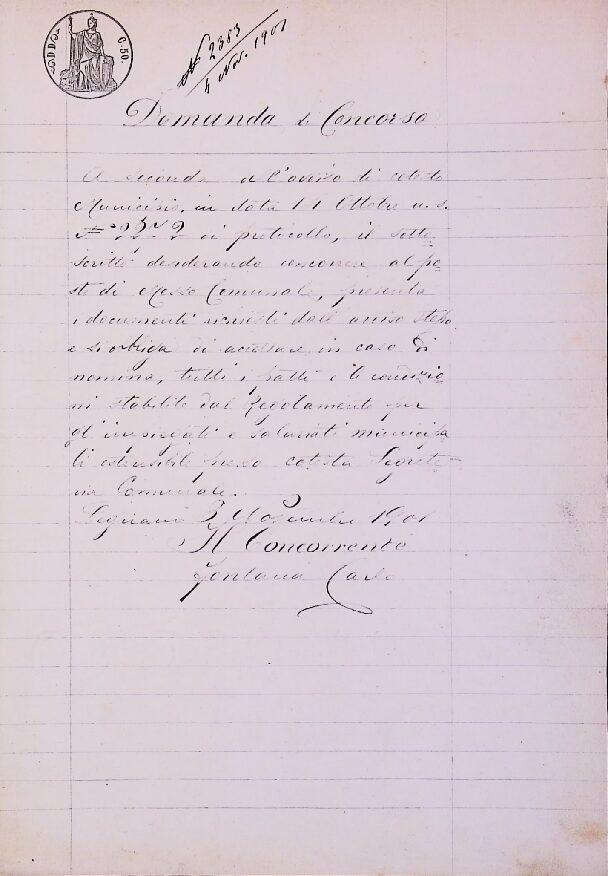 C. 50.
N 2383
4 Nov. 1901
Domanda di Concorso
A seconda all'avviso di cotesto
Municipio, in data 11 Ottobre u. s.
di protocollo, il sotto=
scritto desiderando concorrere al po=
sto di Messo Comunale, presenta
i documenti richiesti dall'avviso stesso
e si obbliga di accettare, in caso di
nomina, tutti i patti e le condizio
ni stabilite dal Regolamento per
gl'impiegati e salariati municipa
li ostensibile presso cotesta Segrete=
ria Comunale.
3 Novembre 1901
Il Concorrente
Fontana Carlo